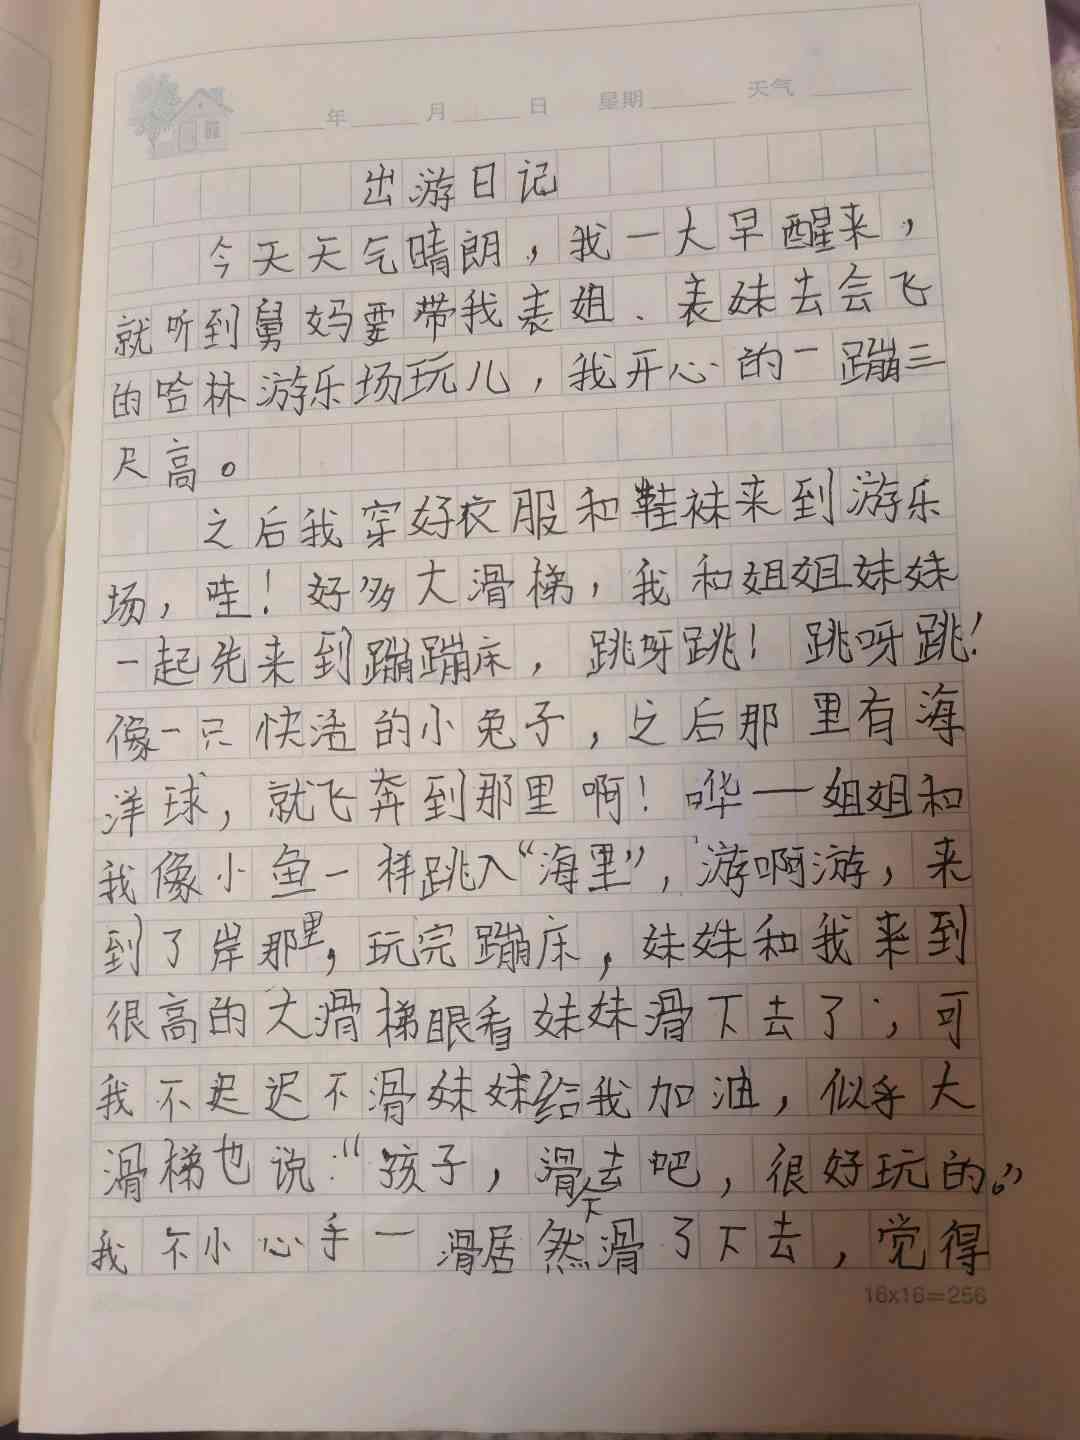 年 月 日 星期 天气
出游日记
今天天气晴朗，我一大早醒来，
就听到舅妈要带我表姐、表妹去会飞
的哈林游乐场玩儿，我开心的一蹦三
尺高。
之后我穿好衣服和鞋袜来到游乐
场，哇！好多大滑梯，我和姐姐妹妹
一起先来到蹦蹦床，跳呀跳！跳呀跳！
像一只快活的小兔子，之后那里有海
洋球，就飞奔到那里啊！哗——姐姐和
我像小鱼一样跳入“海里”，游啊游，来
到了岸那里，玩完蹦床，妹妹和我来到
很高的大滑梯眼看妹妹滑下去了，可
我不迟迟不滑妹妹给我加油，似乎大
滑梯也说：“孩子，滑下去吧，很好玩的。”
我不小心手一滑居然滑了下去，觉得
16x16=256